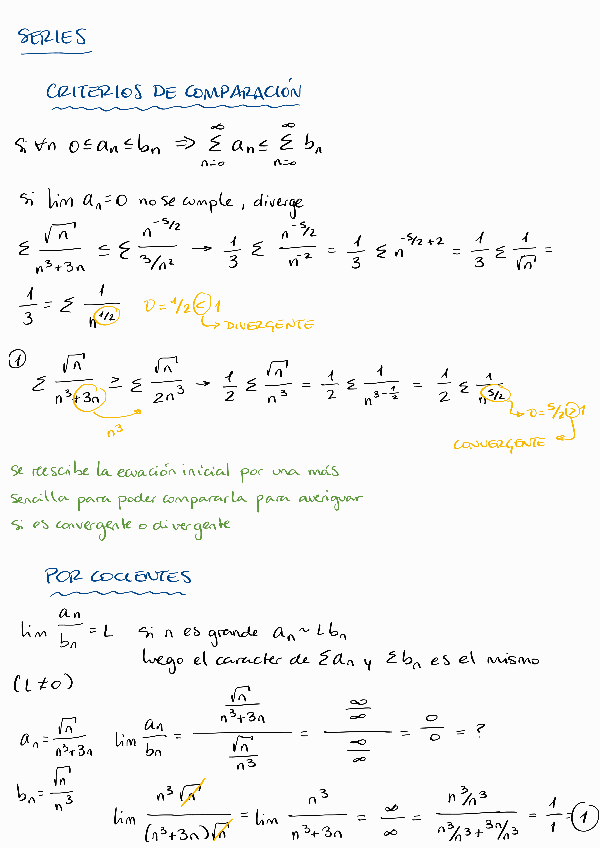 SERIES
CRITERIOS DE COMPARACIÓN
Si ∀n 0≤an≤bn ⇒ ∞Σn=0 an ≤ ∞Σn=0 bn
Si lim an=0 no se cumple, diverge
Σ √n/(n³+3n) ≤ Σ n^(-5/2)/(3/n²) → 1/3 Σ n^(-5/2)/n^(-2) = 1/3 Σ n^(-5/2+2) = 1/3 Σ 1/√n =
1/3 = Σ 1/n^(1/2) υ=1/2 < 1
↳ DIVERGENTE
① Σ √n/(n³+3n) ≥ Σ √n/2n³ → 1/2 Σ √n/n³ = 1/2 Σ 1/n^(3-1/2) = 1/2 Σ 1/n^(5/2)
n³
→ υ=5/2 > 1
CONVERGENTE ←
se reescribe la ecuación inicial por una más
sencilla para poder compararla para averiguar
si es convergente o divergente
POR COCIENTES
lim an/bn = L Si n es grande an ~ Lbn
luego el caracter de Σan y Σbn es el mismo
(L≠0)
an = √n/(n³+3n) lim an/bn = (√n/(n³+3n))/(√n/n³) = (∞/∞)/(∞/∞) = 0/0 = ?
bn = √n/n³
lim n³√n/((n³+3n)√n) = lim n³/(n³+3n) = ∞/∞ = (n³/n³)/(n³/n³+3n/n³) = 1/1 = ①